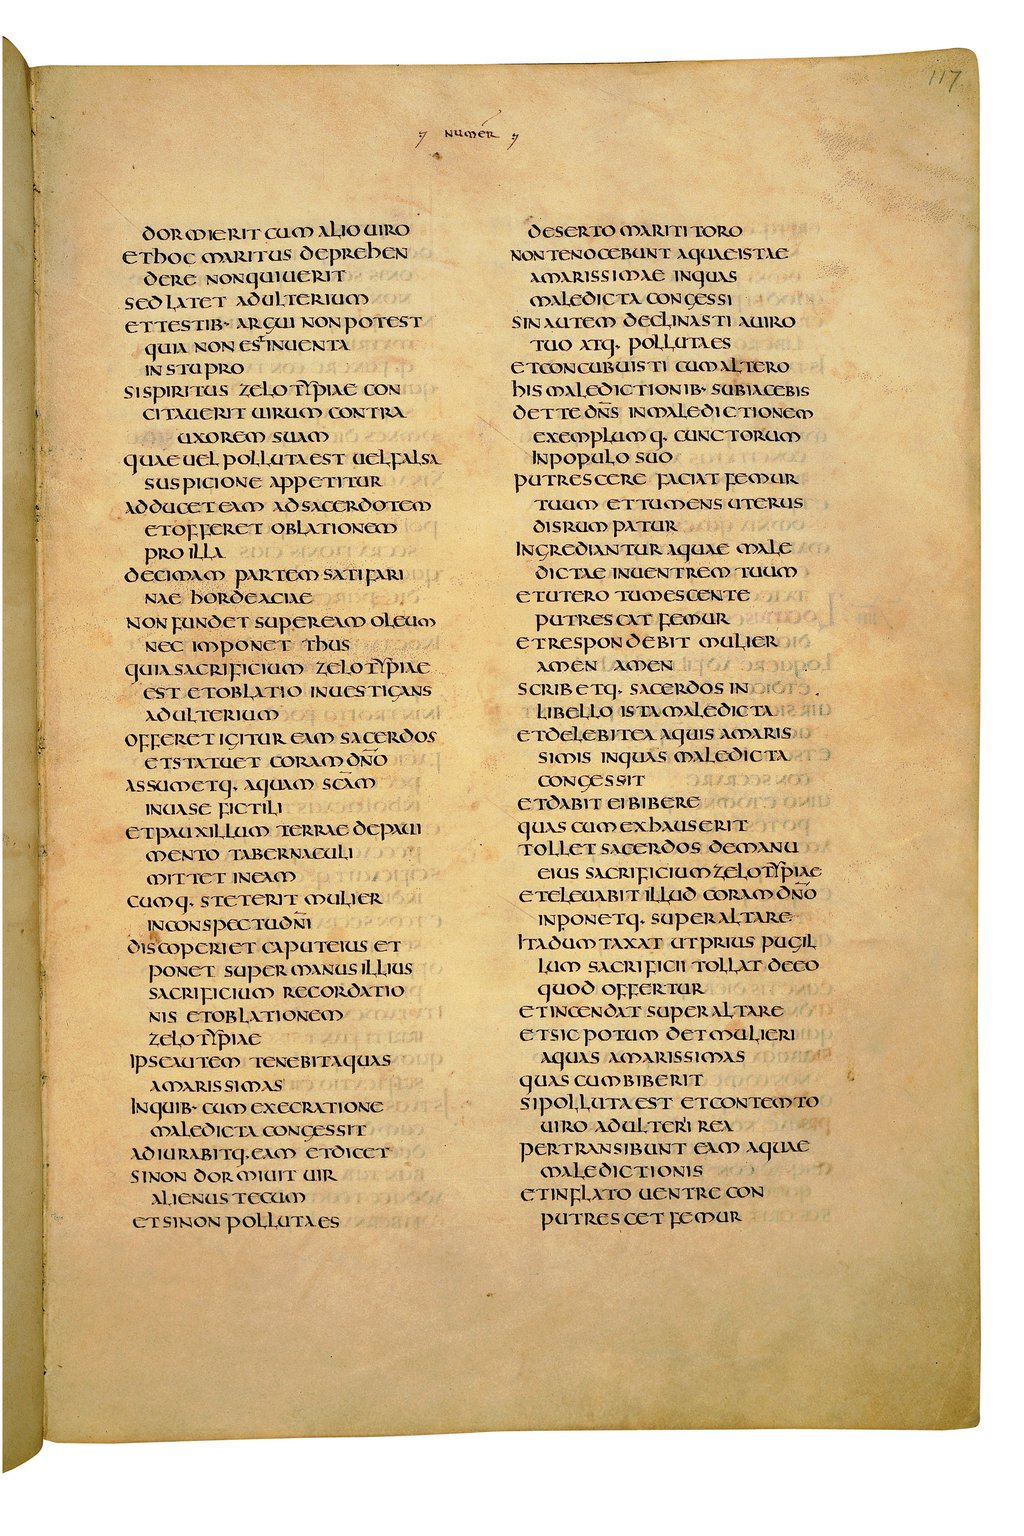 117
numer̄
dormierit cum alio uiro
et hoc maritus deprehen
dere non quiuerit
sed latet adulterium
et testib· argui non potest
quia non est inuenta
in stupro
si spiritus zelotypiae con
citauerit uirum contra
uxorem suam
quae uel polluta est uel falsa
suspicione appetitur
adducet eam ad sacerdotem
et offeret oblationem
pro illa
decimam partem sati fari
nae hordeaciae
non fundet super eam oleum
nec imponet thus
quia sacrificium zelotypiae
est et oblatio inuestigans
adulterium
offeret igitur eam sacerdos
et statuet coram dn̄o
assumetq. aquam scām
in uase fictili
et pauxillum terrae de paui
mento tabernaculi
mittet in eam
cumq. steterit mulier
in conspectu dn̄i
discoperiet caput eius et
ponet super manus illius
sacrificium recordatio
nis et oblationem
zelotypiae
ipse autem tenebit aquas
amarissimas
in quib· cum execratione
maledicta congessit
adiurabitq. eam et dicet
si non dormiuit uir
alienus tecum
et si non polluta es
deserto mariti toro
non te nocebunt aquae istae
amarissimae in quas
maledicta congessi
sin autem declinasti a uiro
tuo atq. polluta es
et concubuisti cum altero
his maledictionib· subiacebis
det te dn̄s in maledictionem
exemplumq. cunctorum
in populo suo
putrescere faciat femur
tuum et tumens uterus
disrumpatur
ingrediantur aquae male
dictae in uentrem tuum
et utero tumescente
putrescat femur
et respondebit mulier
amen amen
scribetq. sacerdos in
libello ista maledicta
et delebit ea aquis amaris
simis in quas maledicta
congessit
et dabit ei bibere
quas cum exhauserit
tollet sacerdos de manu
eius sacrificium zelotypiae
et eleuabit illud coram dn̄o
inponetq. super altare
ita dumtaxat ut prius pugil
lum sacrificii tollat de eo
quod offertur
et incendat super altare
et sic potum det mulieri
aquas amarissimas
quas cum biberit
si polluta est et contemto
uiro adulterii rea
pertransibunt eam aquae
maledictionis
et inflato uentre con
putrescet femur